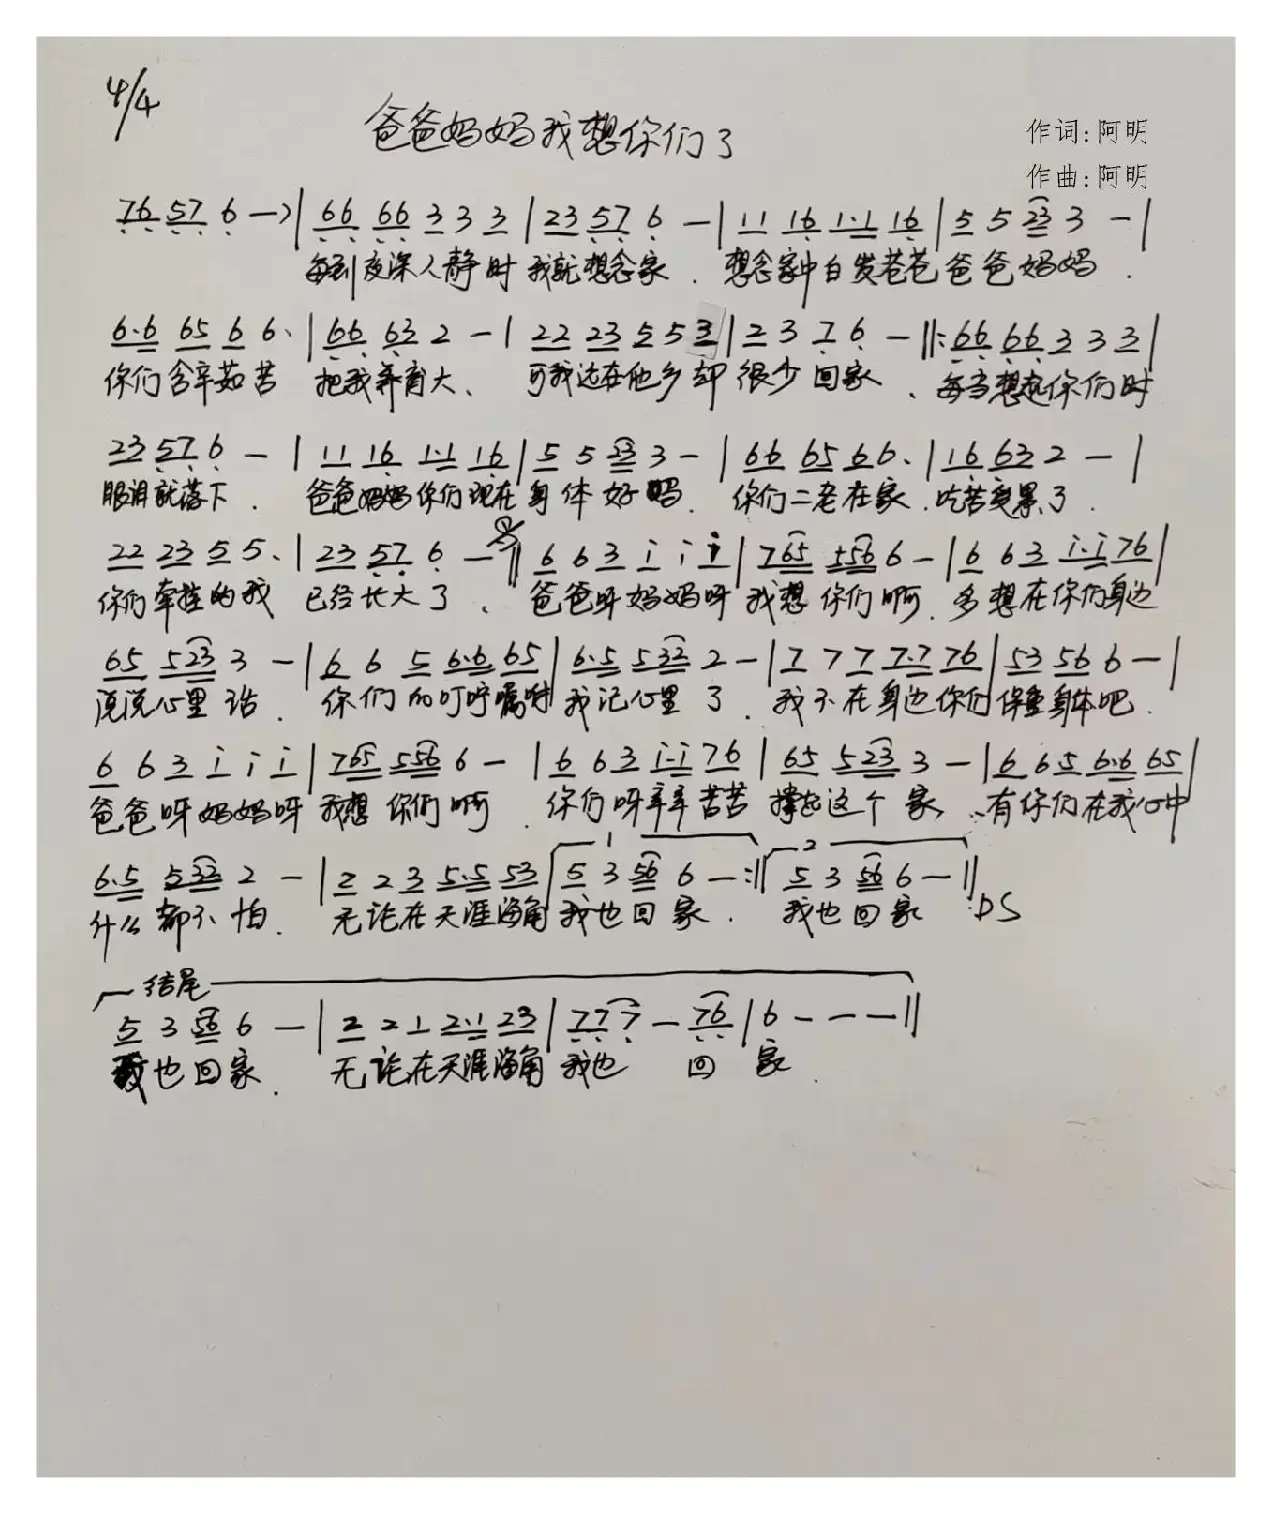 4/4
爸爸妈妈我想你们了
作词:阿明
作曲:阿明
76 57 6 -->| 66 66 3 3 3 | 23 57 6 - | 11 16 1·1 16 | 5 5 23 3 - |
每到夜深人静时 我就想念家. 想念家中白发苍苍爸爸妈妈.
6·6 65 6 6· | 66 63 2 - | 22 23 5 5 3 | 2 3 7 6 - ‖: 66 66 3 3 3 |
你们含辛茹苦 把我养育大、 可我远在他乡却 很少回家、 每当想起你们时
23 57 6 - | 11 16 1·1 16 | 5 5 23 3 - | 66 65 6 6· | 16 63 2 - |
眼泪就落下. 爸爸妈妈你们现在身体好吗. 你们二老在家.吃苦受累了.
22 23 5 5· | 23 57 6 - ‖ 6 6 3 i i i | 765 556 6 - | 6 6 3 i·i 76 |
你们牵挂的我 已经长大了、 爸爸呀妈妈呀 我想你们啊. 多想在你们身边
65 523 3 - | 6 6 5 6·6 65 | 6·5 532 2 - | 7 7 7 7·7 76 | 53 56 6 - |
说说心里话. 你们的叮咛嘱咐 我记心里了. 我不在身边你们保重身体吧.
6 6 3 i i i | 765 556 6 - | 6 6 3 i·i 76 | 65 523 3 - | 6 6 5 6·6 65 |
爸爸呀妈妈呀 我想你们啊. 你们呀辛辛苦苦 撑起这个家、有你们在我心中
1 2
6·5 532 2 - | 2 2 3 5·5 53 | 5 3 56 6 - :‖ 5 3 56 6 - ‖ DS
什么都不怕. 无论在天涯海角 我也回家. 我也回家
结尾
5 3 56 6 - | 2 2 1 2·1 23 | 77 7 - 76 | 6 - - - ‖
我也回家. 无论在天涯海角 我也 回 家.